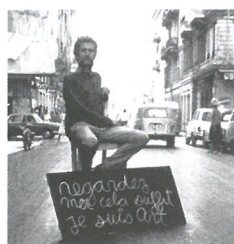 regardez
moi cela suffit
je suis art